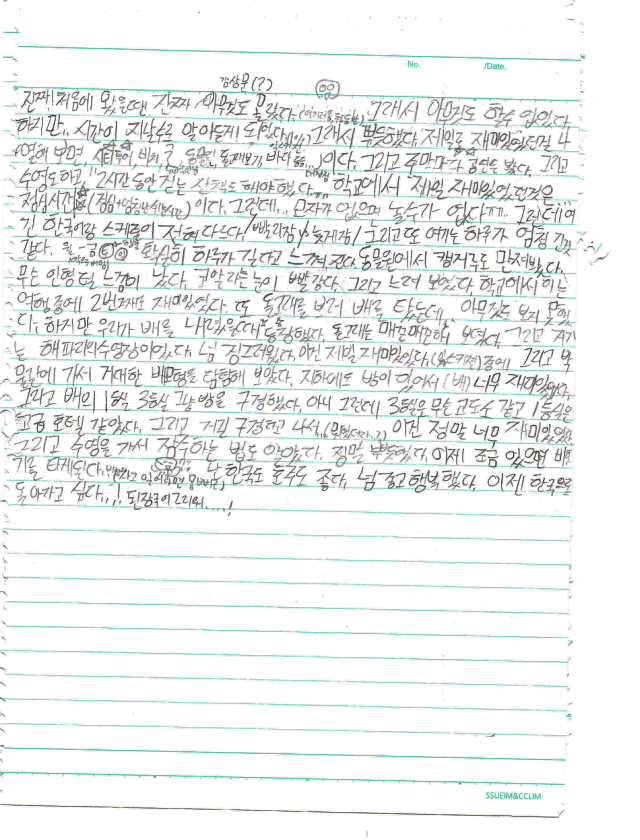 No. /Date.
감상문(?)
진짜! 처음에 왔을때, 진짜 아무것도 몰랐다. 그래서 아무것도 할수 없었다.
하지만, 시간이 지날수록 알아듣게 되었다. 그래서 뿌듯했다. 제일로 재미있었던걸 나
열해 보면, 바다 이다. 그리고 주마다 공연을 봤다. 그리고
수영도하고 2시간 동안 걷는 산책도 해야 했다. 학교에서 제일 재미있었던것은
점심시간 이다. 그런데... 모자가 없으면 놀수가 없다. 그런데 여
긴 한국이랑 스케줄이 전혀 다르다. /빨리잠 vs 늦게잠/ 그리고 또 여기는 하루가 엄청 긴것
같다. 월~금 확실히 하루가 길다고 느껴진다. 동물원에서 캥거루도 만져봤다.
무슨 인형 털 느낌이 났다. 코알라는 눈이 빨갛다. 그리고 느려 보였다. 학교에서 하는
여행 중에 2번째로 재미있었다. 또 돌고래를 보러 배를 탔는데, 아무것도 보지 못했
다. 하지만 우리가 배를 내렸을때 등장했다. 돌고래는 매끈매끈해 보였다. 그리고 거기
는 해파리의 수영장이었다. 넘 징그러웠다. 이건 제일 재미있었다. 중에 그리고 박
물관에 가서 거대한 배모형을 탐험해 보았다. 지하에도 방이 있어서 (배) 너무 재미있었다.
그리고 배의 1등실 3등실 그냥 방을 구경했다. 아니 그런데 3등실은 무슨 감옥 같고 1등실은
고급 호텔 같았다. 그리고 거긴 구경하고 나서 이건 정말 너무 재미있었다.
그리고 수영을 가서 잠수하는 법도 알았다. 정말 뿌듯했다. 이제 조금 있으면 비행
기를 타게된다. 난 한국도 호주도 좋다. 넘 좋고 행복했다. 이젠 한국으로
돌아가고 싶다,,! 된장국이 그리워....!
SSUEIM&CCLIM